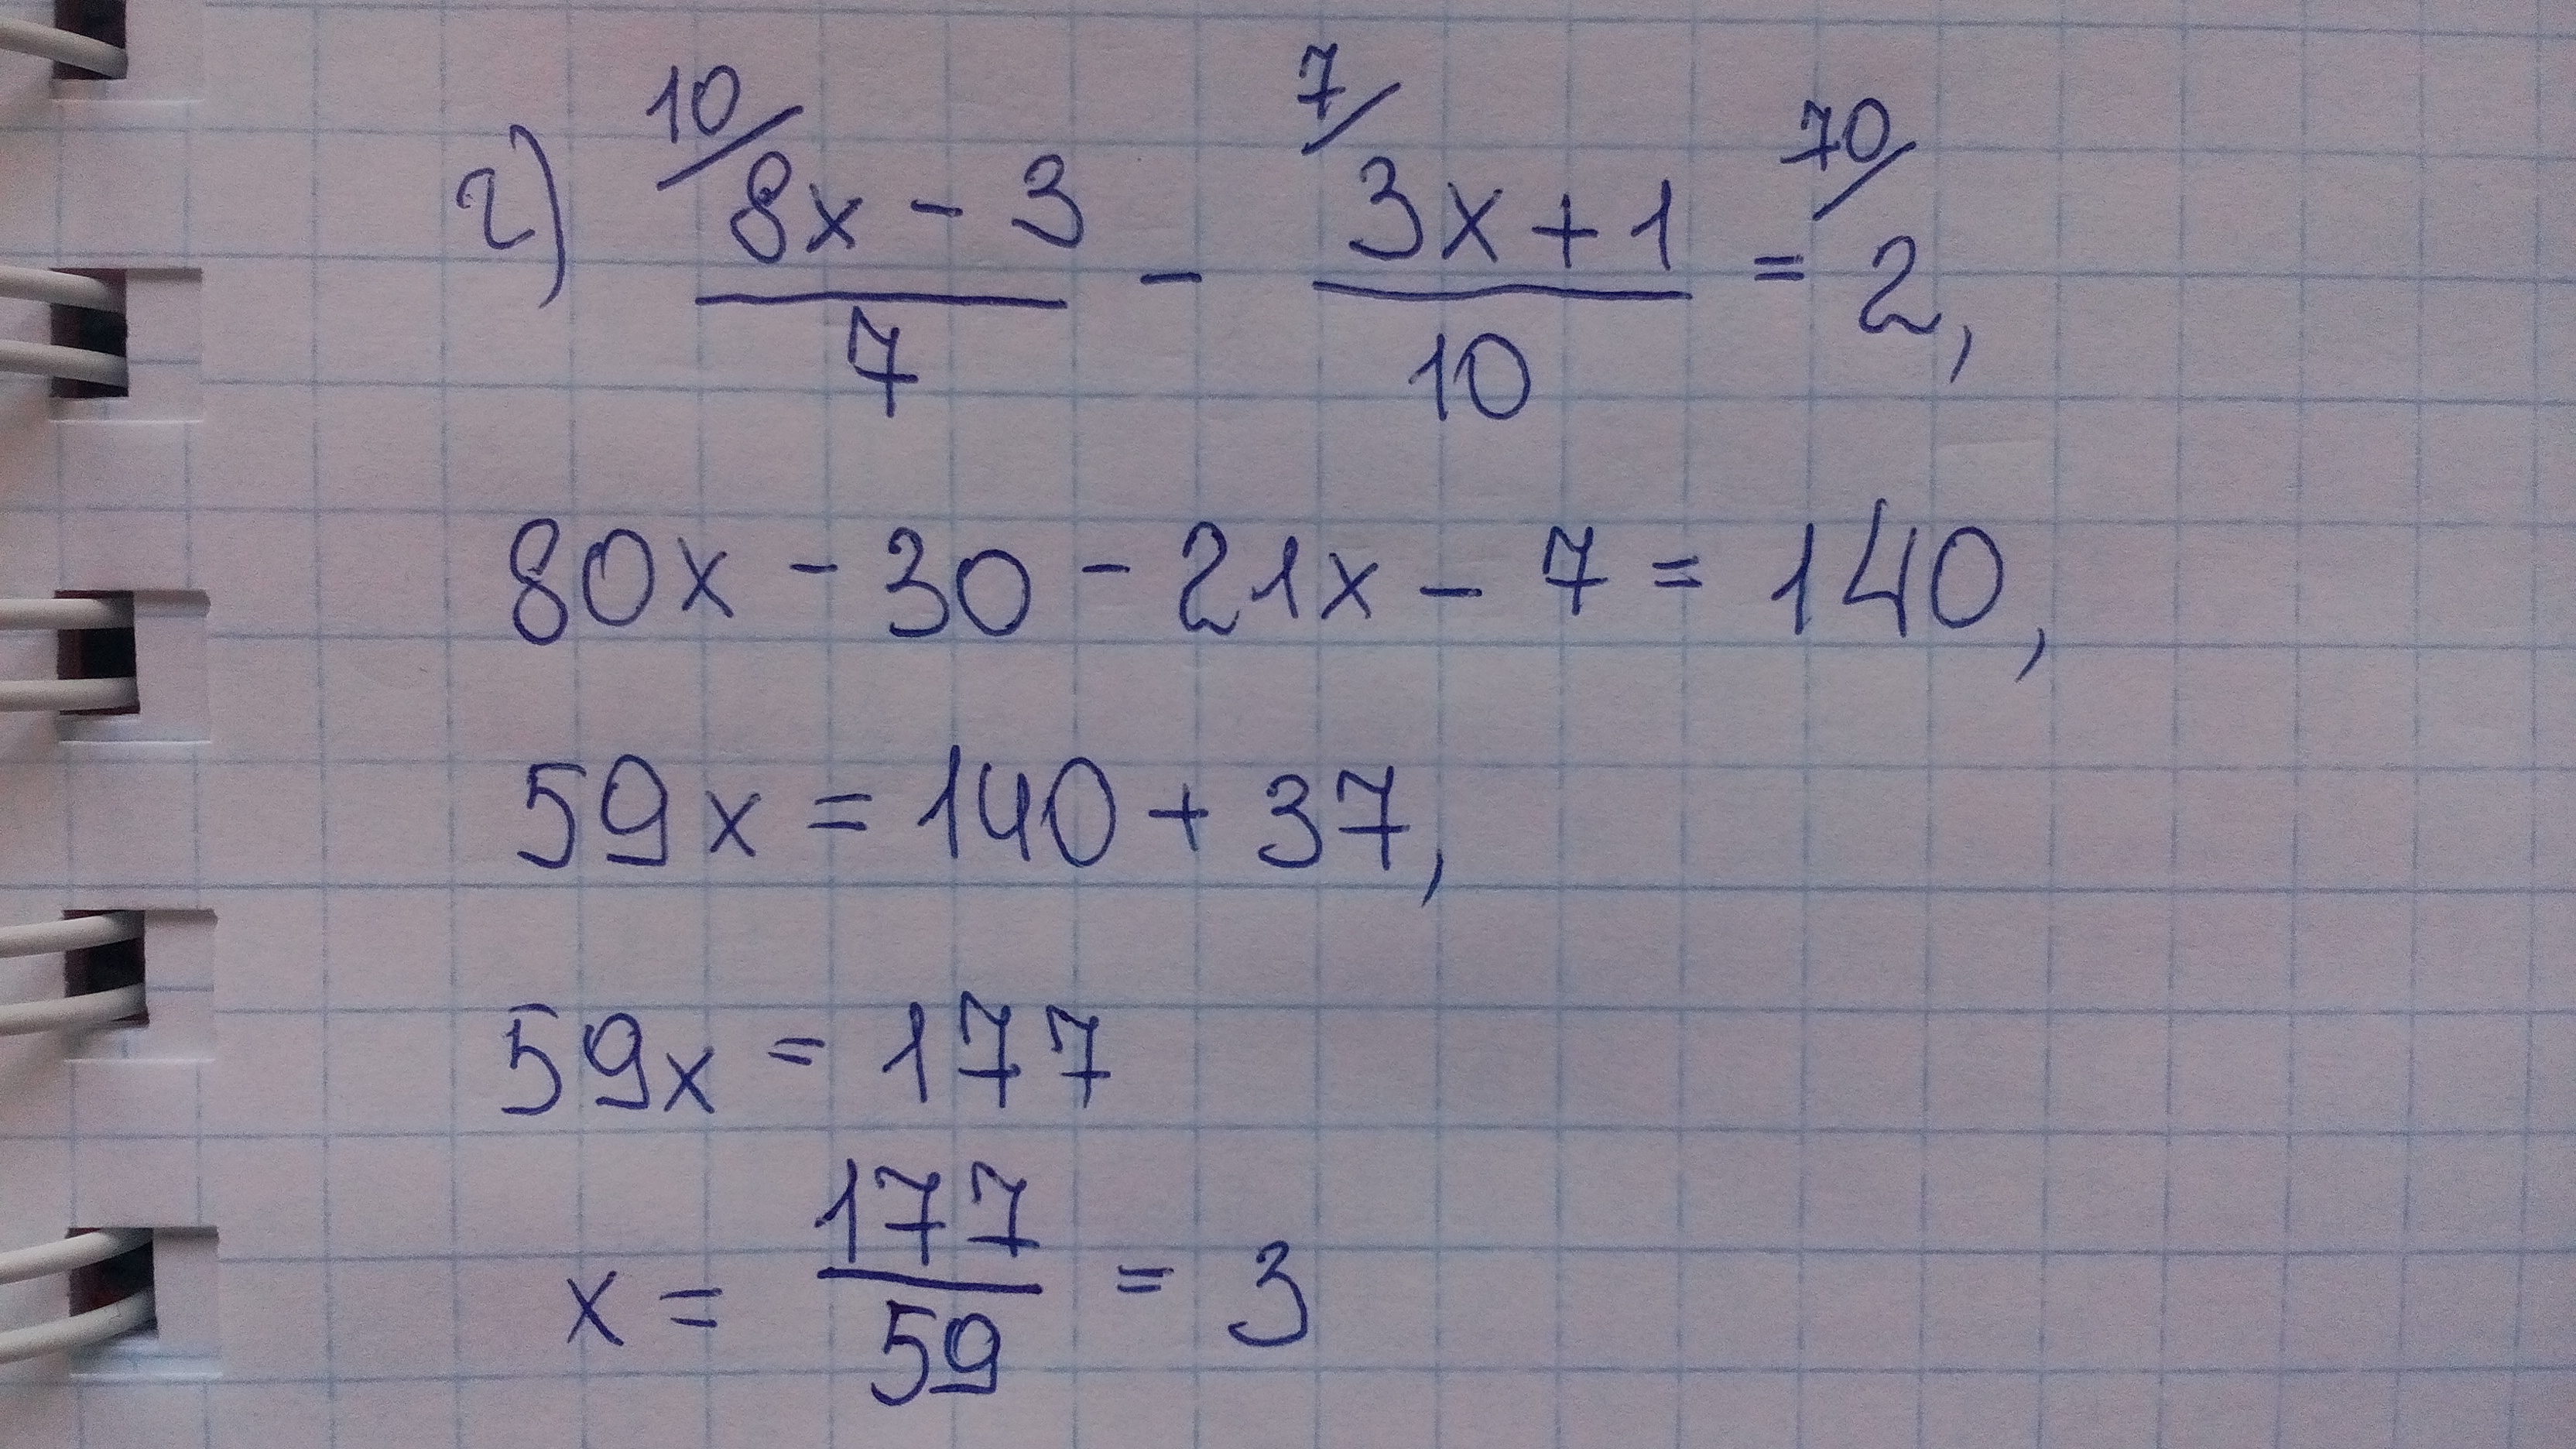 г) ¹⁰/ (8x - 3)/7 - ⁷/ (3x + 1)/10 = ⁷⁰/ 2,
80x - 30 - 21x - 7 = 140,
59x = 140 + 37,
59x = 177
x = 177/59 = 3